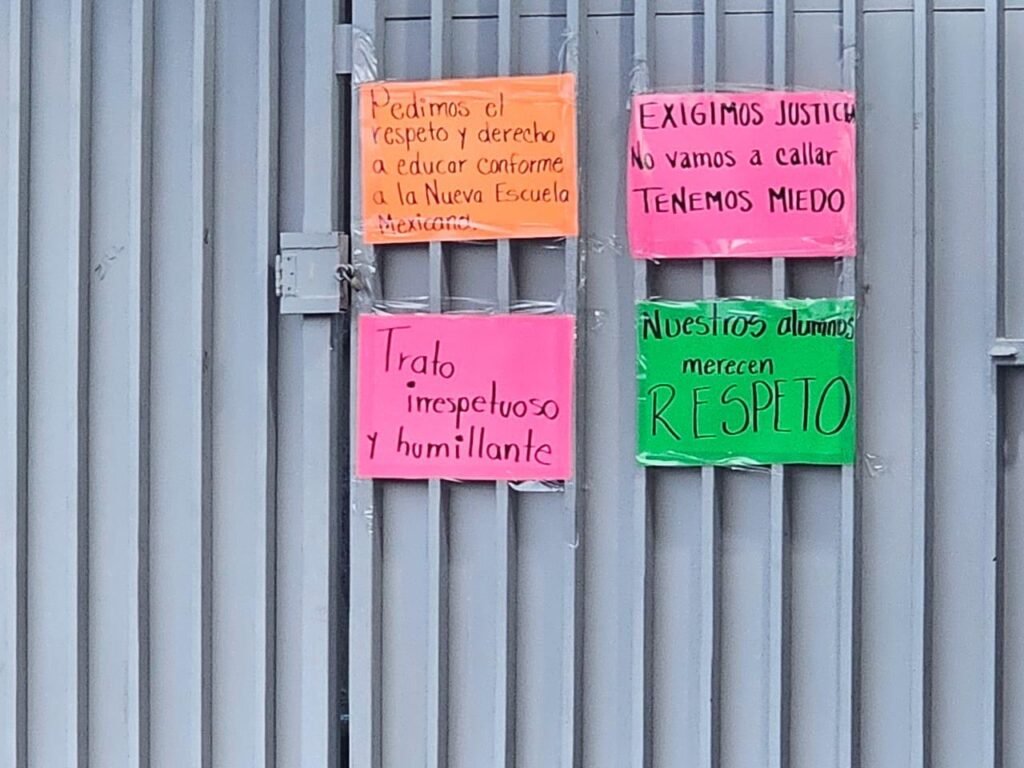 Pedimos el
respeto y derecho
a educar conforme
a la Nueva Escuela
Mexicana.
EXIGIMOS JUSTICIA
No vamos a callar
TENEMOS MIEDO
Trato
irrespetuoso
y humillante
Nuestros alumnos
merecen
RESPETO